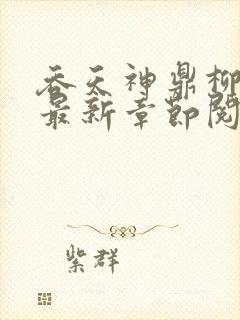 吞天神鼎柳
最新章节阅
紫群